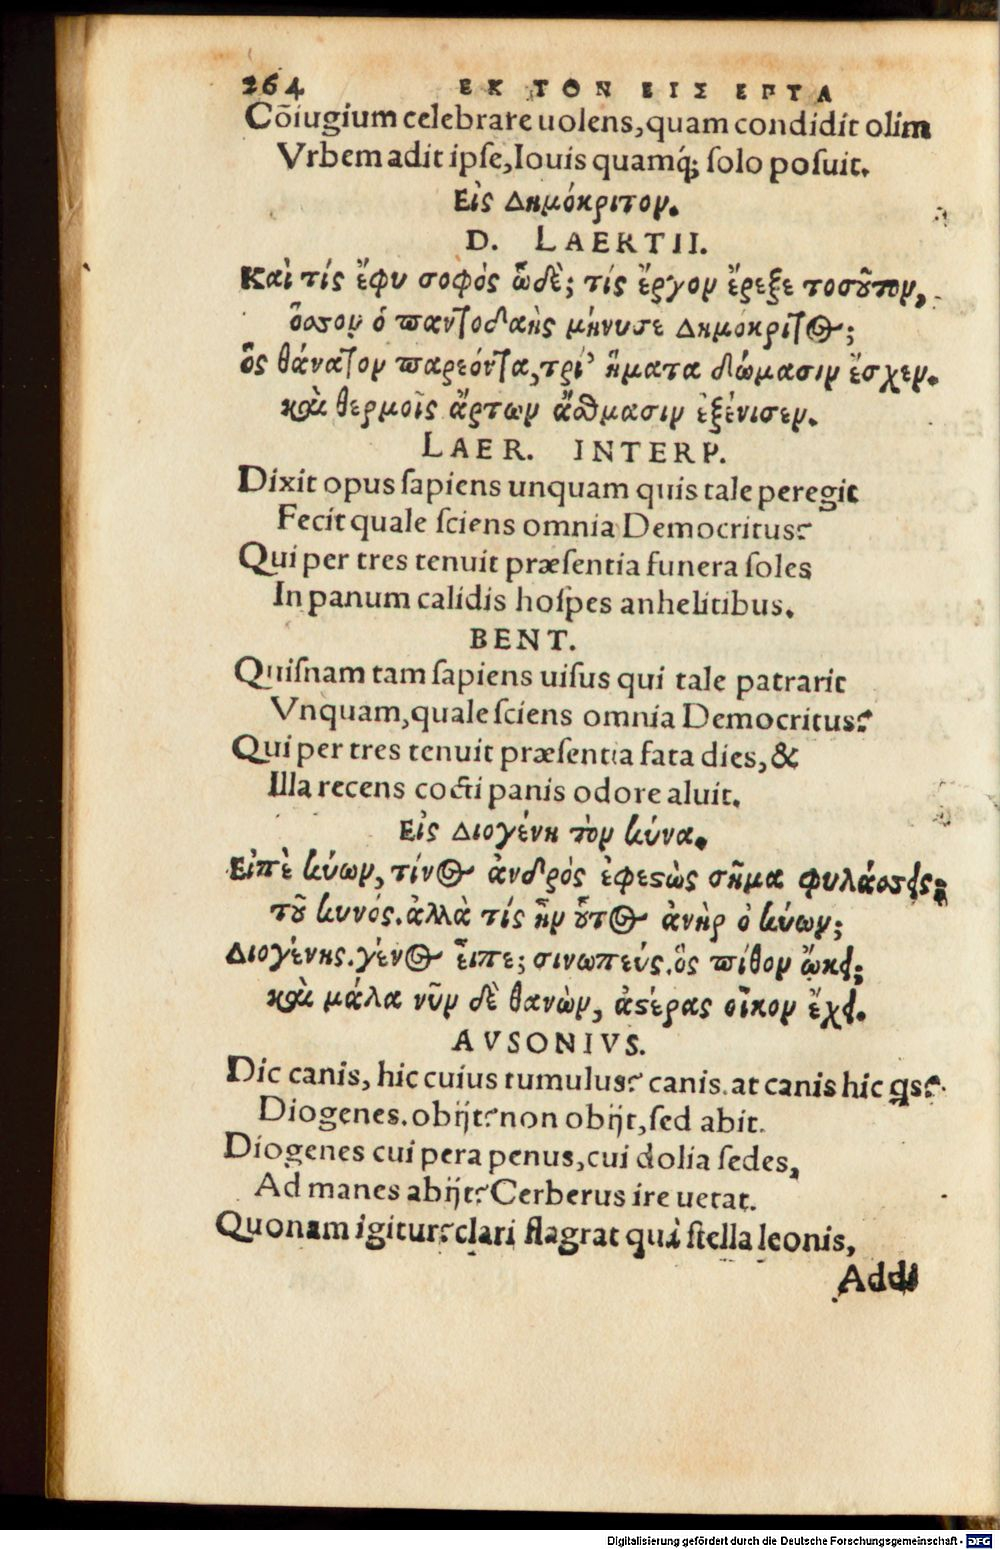 264 ΕΚ ΤΩΝ ΕΙΣ ΕΡΓΑ
Cōiugium celebrare uolens, quam condidit olim
Vrbem adit ipse, Iouis quamq́; solo posuit.
Εἰς Δημόκριτον.
D. LAERTII.
Καὶ τίς ἔφυ σοφὸς ὧδὲ; τίς ἔργον ἔρεξε τοσοῦτον,
ὅσσον ὁ παντοδαὴς μήνυσε Δημόκριτος;
ὃς θάνατον παρεόντα, τρί' ἤματα δώμασιν ἔσχεν.
καὶ θερμοῖς ἄρτων ἄσθμασιν ἐξένισεν.
LAER. INTERP.
Dixit opus sapiens unquam quis tale peregit
Fecit quale sciens omnia Democritus?
Qui per tres tenuit præsentia funera soles
In panum calidis hospes anhelitibus.
BENT.
Quisnam tam sapiens uisus qui tale patrarit
Vnquam, quale sciens omnia Democritus?
Qui per tres tenuit præsentia fata dies, &
Illa recens cocti panis odore aluit.
Εἰς Διογένη τὸν κύνα.
Εἰπὲ κύων, τίνος ἀνδρὸς ἐφεστὼς σῆμα φυλάσσεις;
τοῦ κυνός. ἀλλὰ τίς ἦν οὗτος ἀνὴρ ὁ κύων;
Διογένης. γένος εἶπε; σινωπεύς. ὃς πίθον ᾤκει;
καὶ μάλα νῦν δὲ θανὼν, ἀστέρας οἶκον ἔχει.
AVSONIVS.
Dic canis, hic cuius tumulus? canis. at canis hic qs?
Diogenes. obijt? non obijt, sed abit.
Diogenes cui pera penus, cui dolia sedes,
Ad manes abijt? Cerberus ire uetat.
Quonam igitur? clari flagrat quà stella leonis,
Addi
Digitalisierung gefördert durch die Deutsche Forschungsgemeinschaft - DFG